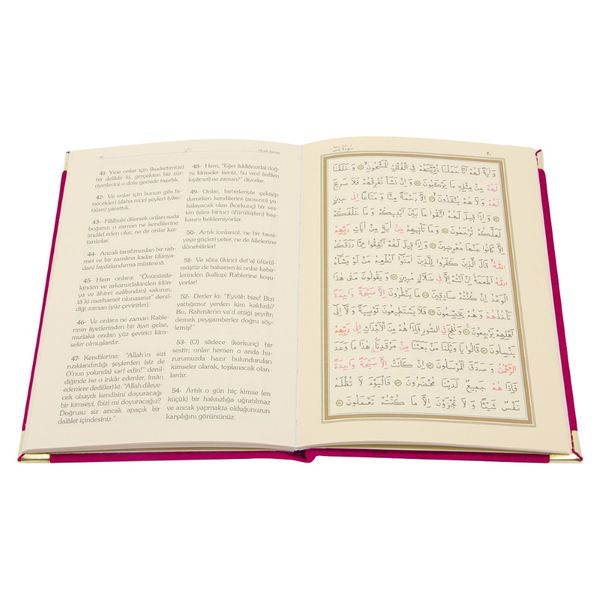 41- Yine onlar için (kudretimize)
bir delildir ki, gerçekten biz
zürriyetlerini o dolu gemide taşıdık.
42- Ve onlar için bunun gibi
binecekleri (daha nice) şeyleri
yarattık.
43- Hâlbuki dilersek onları suda
boğarız; o zaman ne kendilerine
imdâd eden olur, ne de onlar kur-
tarılırlar.
44- Ancak tarafımızdan bir rah-
met ve bir zamana kadar (dünya-
dan) faydalandırma müstesnâ.
45- Hem onlara: "Önünüzde-
kinden ve arkanızdakinden (dün-
ya ve âhiret azâbından) sakının;
tâ ki merhamet olunasınız" denil-
diği zaman (yüz çevirirler).
46- Ve onlara ne zaman Rable-
rinin âyetlerinden bir âyet gelse,
mutlaka ondan yüz çevirici kim-
seler olmuşlardır.
47- Kendilerine: "Allah'ın sizi
rızıklandırdığı şeylerden (siz de
O'nun yolunda) sarf edin!" denil-
diğinde ise o inkâr edenler, îmân
edenlere dedi(ler) ki: "Allah dileyecek
olsaydı kendisini doyuracağı
bir kimseyi, (biz) mi doyuracağız?
Doğrusu siz ancak apaçık bir
dalâlet içindesiniz."
48- Hem, "Eğer (iddiânızda) doğ-
ru kimseler iseniz, bu vaad (edilen
kıyâmet) ne zaman?" diyorlar.
49- Onlar, birbirleriyle çekişip
dururlarken kendilerini (ansızın) ya-
kalayacak olan (korkunç) bir ses-
ten (sûra birinci üfürülüşten) baş-
kasını beklemiyorlar.
50- Artık (onlar)ın, ne bir tav-
siyeye güçleri yeter, ne de âilelerine
dönebilirler!
51- Ve sûra (ikinci def'a) üfürül-
müştür de bakarsın ki onlar kabir-
lerinden (kalkıp) Rablerine koşu-
yorlar.
52- Derler ki: "Eyvâh bize! Bizi
yattığımız yerden kim kaldırdı?
Bu, Rahmân'ın va'd ettiği şeydir;
demek peygamberler doğru söy-
lemiş!"
53- (O) sâdece (korkunç) bir
sestir; onlar hemen o anda hu-
zurumuzda hazır bulundurulan
kimseler olarak, toplanacak olan-
lardır.
54- Artık o gün hiç kimse (en
küçük) bir haksızlığa uğratılmaz
ve ancak yapmakta olduğunuzun
karşılığını görürsünüz.
وَاٰيَةٌ لَهُمْ اَنَّا حَمَلْنَا ذُرِّيَّتَهُمْ فِي الْفُلْكِ الْمَشْحُونِ وَخَلَقْنَا
لَهُمْ مِنْ مِثْلِهِ مَا يَرْكَبُونَ وَاِنْ نَشَأْ نُغْرِقْهُمْ فَلَا صَرِيخَ
لَهُمْ وَلَا هُمْ يُنْقَذُونَ اِلَّا رَحْمَةً مِنَّا وَمَتَاعًا اِلٰى حِينٍ
وَاِذَا قِيلَ لَهُمُ اتَّقُوا مَا بَيْنَ اَيْدِيكُمْ وَمَا خَلْفَكُمْ
لَعَلَّكُمْ تُرْحَمُونَ وَمَا تَأْتِيهِمْ مِنْ اٰيَةٍ مِنْ اٰيَاتِ رَبِّهِمْ
اِلَّا كَانُوا عَنْهَا مُعْرِضِينَ وَاِذَا قِيلَ لَهُمْ اَنْفِقُوا مِمَّا رَزَقَكُمُ
اللّٰهُ قَالَ الَّذِينَ كَفَرُوا لِلَّذِينَ اٰمَنُوا اَنُطْعِمُ مَنْ لَوْ يَشَاءُ
اللّٰهُ اَطْعَمَهُ اِنْ اَنْتُمْ اِلَّا فِي ضَلَالٍ مُبِينٍ وَيَقُولُونَ مَتٰى هٰذَا
الْوَعْدُ اِنْ كُنْتُمْ صَادِقِينَ مَا يَنْظُرُونَ اِلَّا صَيْحَةً وَاحِدَةً
تَأْخُذُهُمْ وَهُمْ يَخِصِّمُونَ فَلَا يَسْتَطِيعُونَ تَوْصِيَةً وَلَا اِلٰى
اَهْلِهِمْ يَرْجِعُونَ وَنُفِخَ فِي الصُّورِ فَاِذَا هُمْ مِنَ الْاَجْدَاثِ اِلٰى رَبِّهِمْ
يَنْسِلُونَ قَالُوا يَا وَيْلَنَا مَنْ بَعَثَنَا مِنْ مَرْقَدِنَا هٰذَا مَا وَعَدَ
الرَّحْمٰنُ وَصَدَقَ الْمُرْسَلُونَ اِنْ كَانَتْ اِلَّا صَيْحَةً وَاحِدَةً
فَاِذَا هُمْ جَمِيعٌ لَدَيْنَا مُحْضَرُونَ فَالْيَوْمَ لَا تُظْلَمُ
نَفْسٌ شَيْئًا وَلَا تُجْزَوْنَ اِلَّا مَا كُنْتُمْ تَعْمَلُونَ